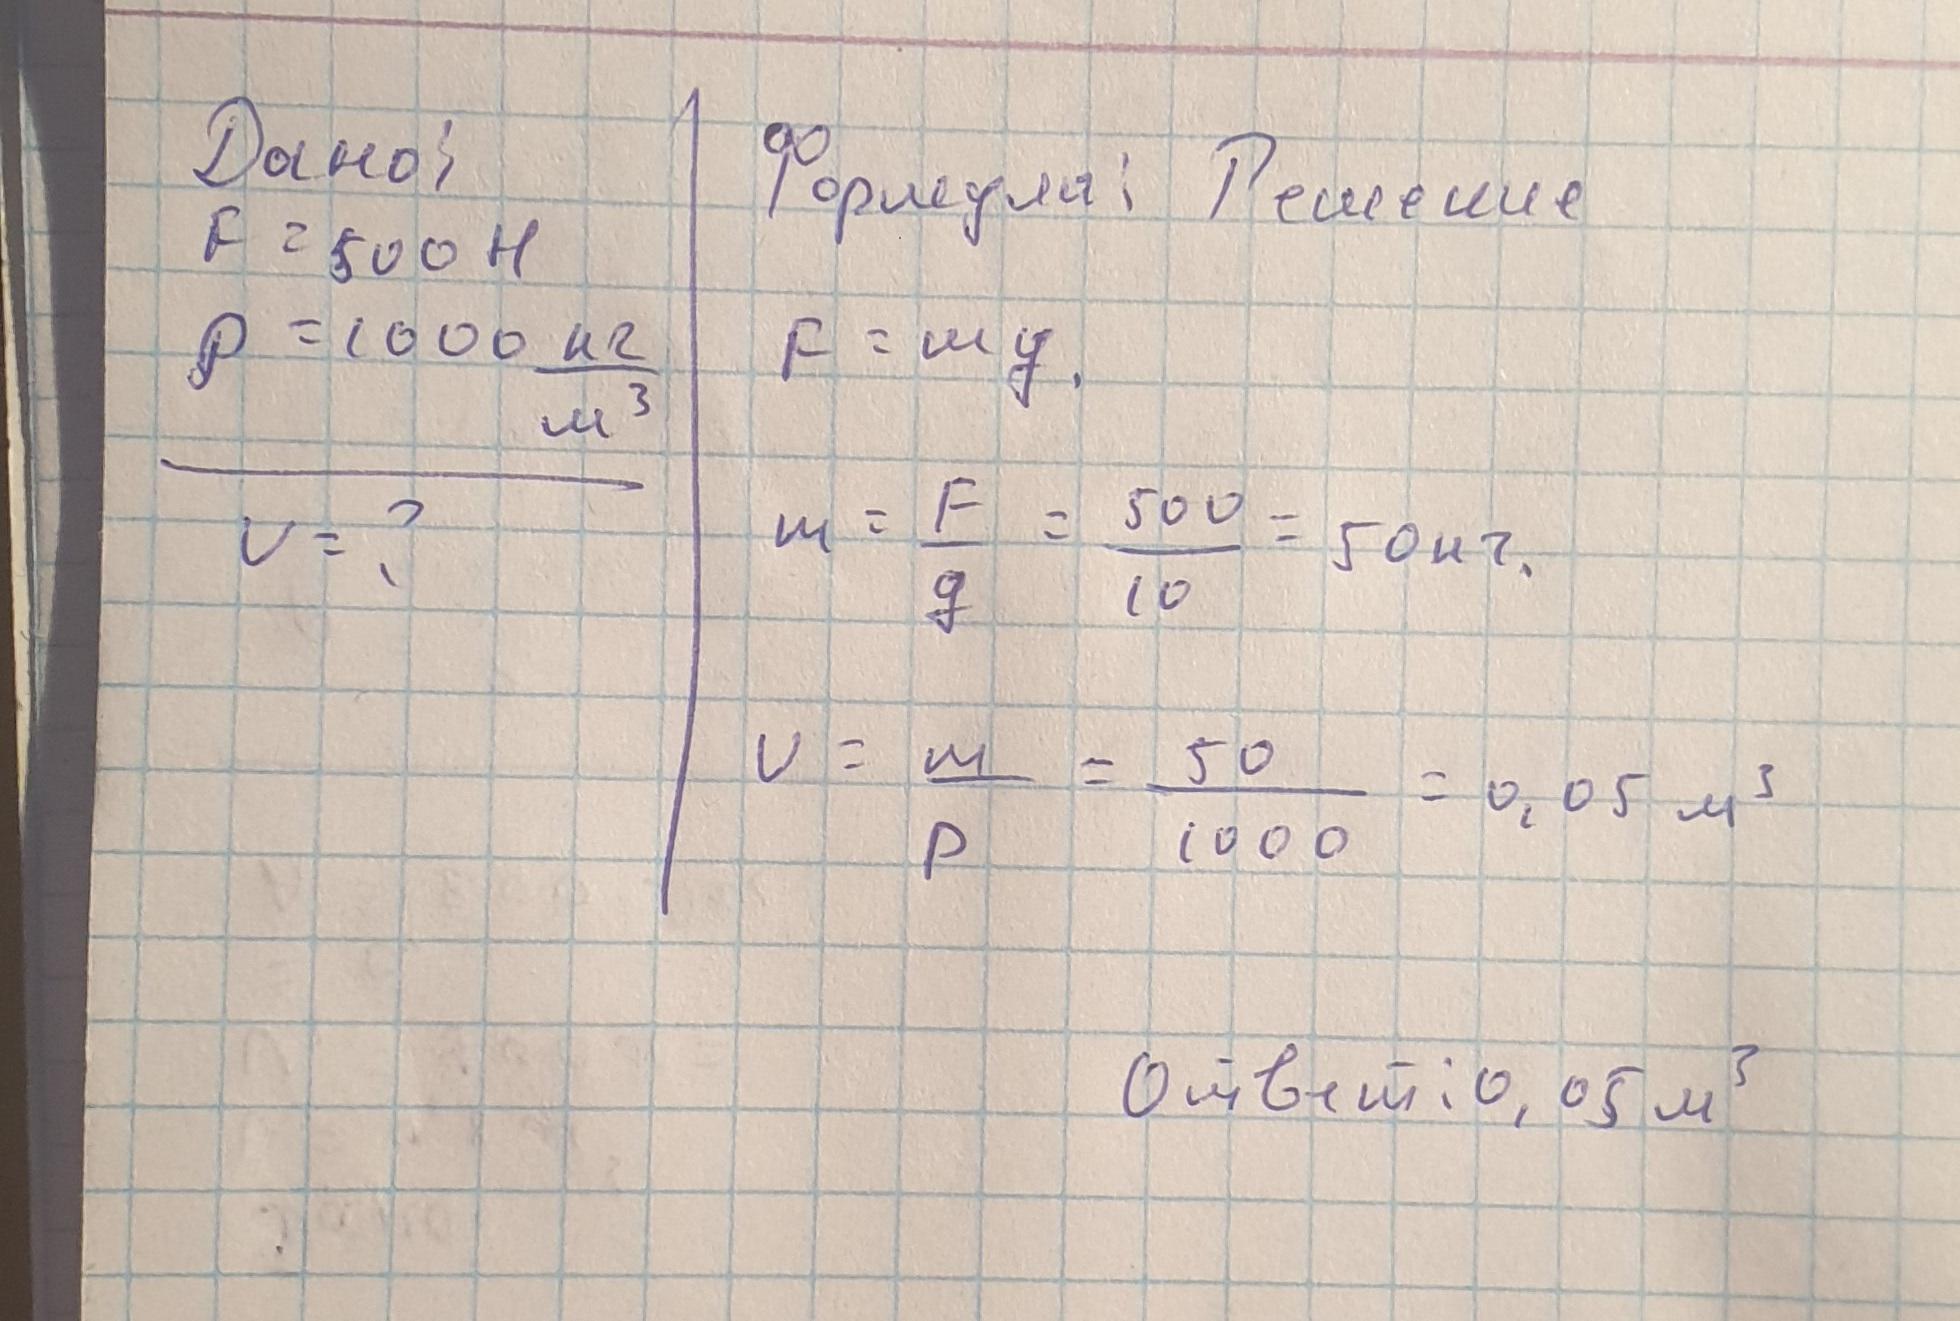 Дано:
F = 500 Н
p = 1000 кг/м³
V = ?
Формула: Решение
F = mg.
m = F/g = 500/10 = 50 кг.
V = m/p = 50/1000 = 0,05 м³
Ответ: 0,05 м³